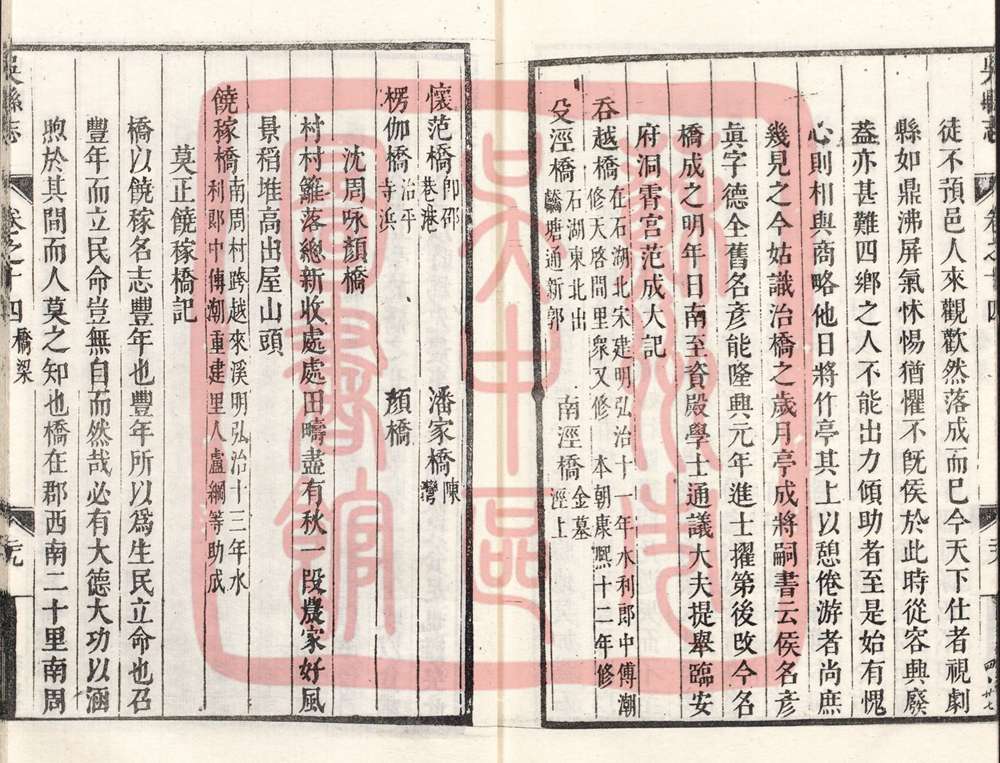 徒不預邑人來觀歡然落成而已今天下仕者視劇
縣如鼎沸屏氣怵惕猶懼不旣侯於此時從容興廢
葢亦甚難四鄉之人不能出力傾助者至是始有愧
心則相與商略他日將作亭其上以憩倦游者尚庶
幾見之今姑識治橋之歲月亭成將嗣書云侯名彥
眞字德全舊名彥能隆興元年進士擢第後改今名
橋成之明年日南至資殿學士通議大夫提舉臨安
府洞霄宮范成大記
吞越橋在石湖北宋建明弘治十一年水利郎中傅潮修天啓間里衆又修 本朝康熙十二年修
殳涇橋石湖東北出蠡塘通新郭 南涇橋金墓涇上
懷范橋卽邵巷港 潘家橋陳灣
楞伽橋治平寺浜 顏橋
沈周咏顏橋
村村籬落總新收處處田疇盡有秋一段農家好風
景稻堆高出屋山頭
饒稼橋南周村跨越來溪明弘治十三年水利郎中傅潮重建里人盧綱等助成
莫正饒稼橋記
橋以饒稼名志豐年也豐年所以爲生民立命也召
豐年而立民命豈無自而然哉必有大德大功以涵
煦於其間而人莫之知也橋在郡西南二十里南周
吳縣志 卷之十四 橋梁
蘇州市吳中區圖書館